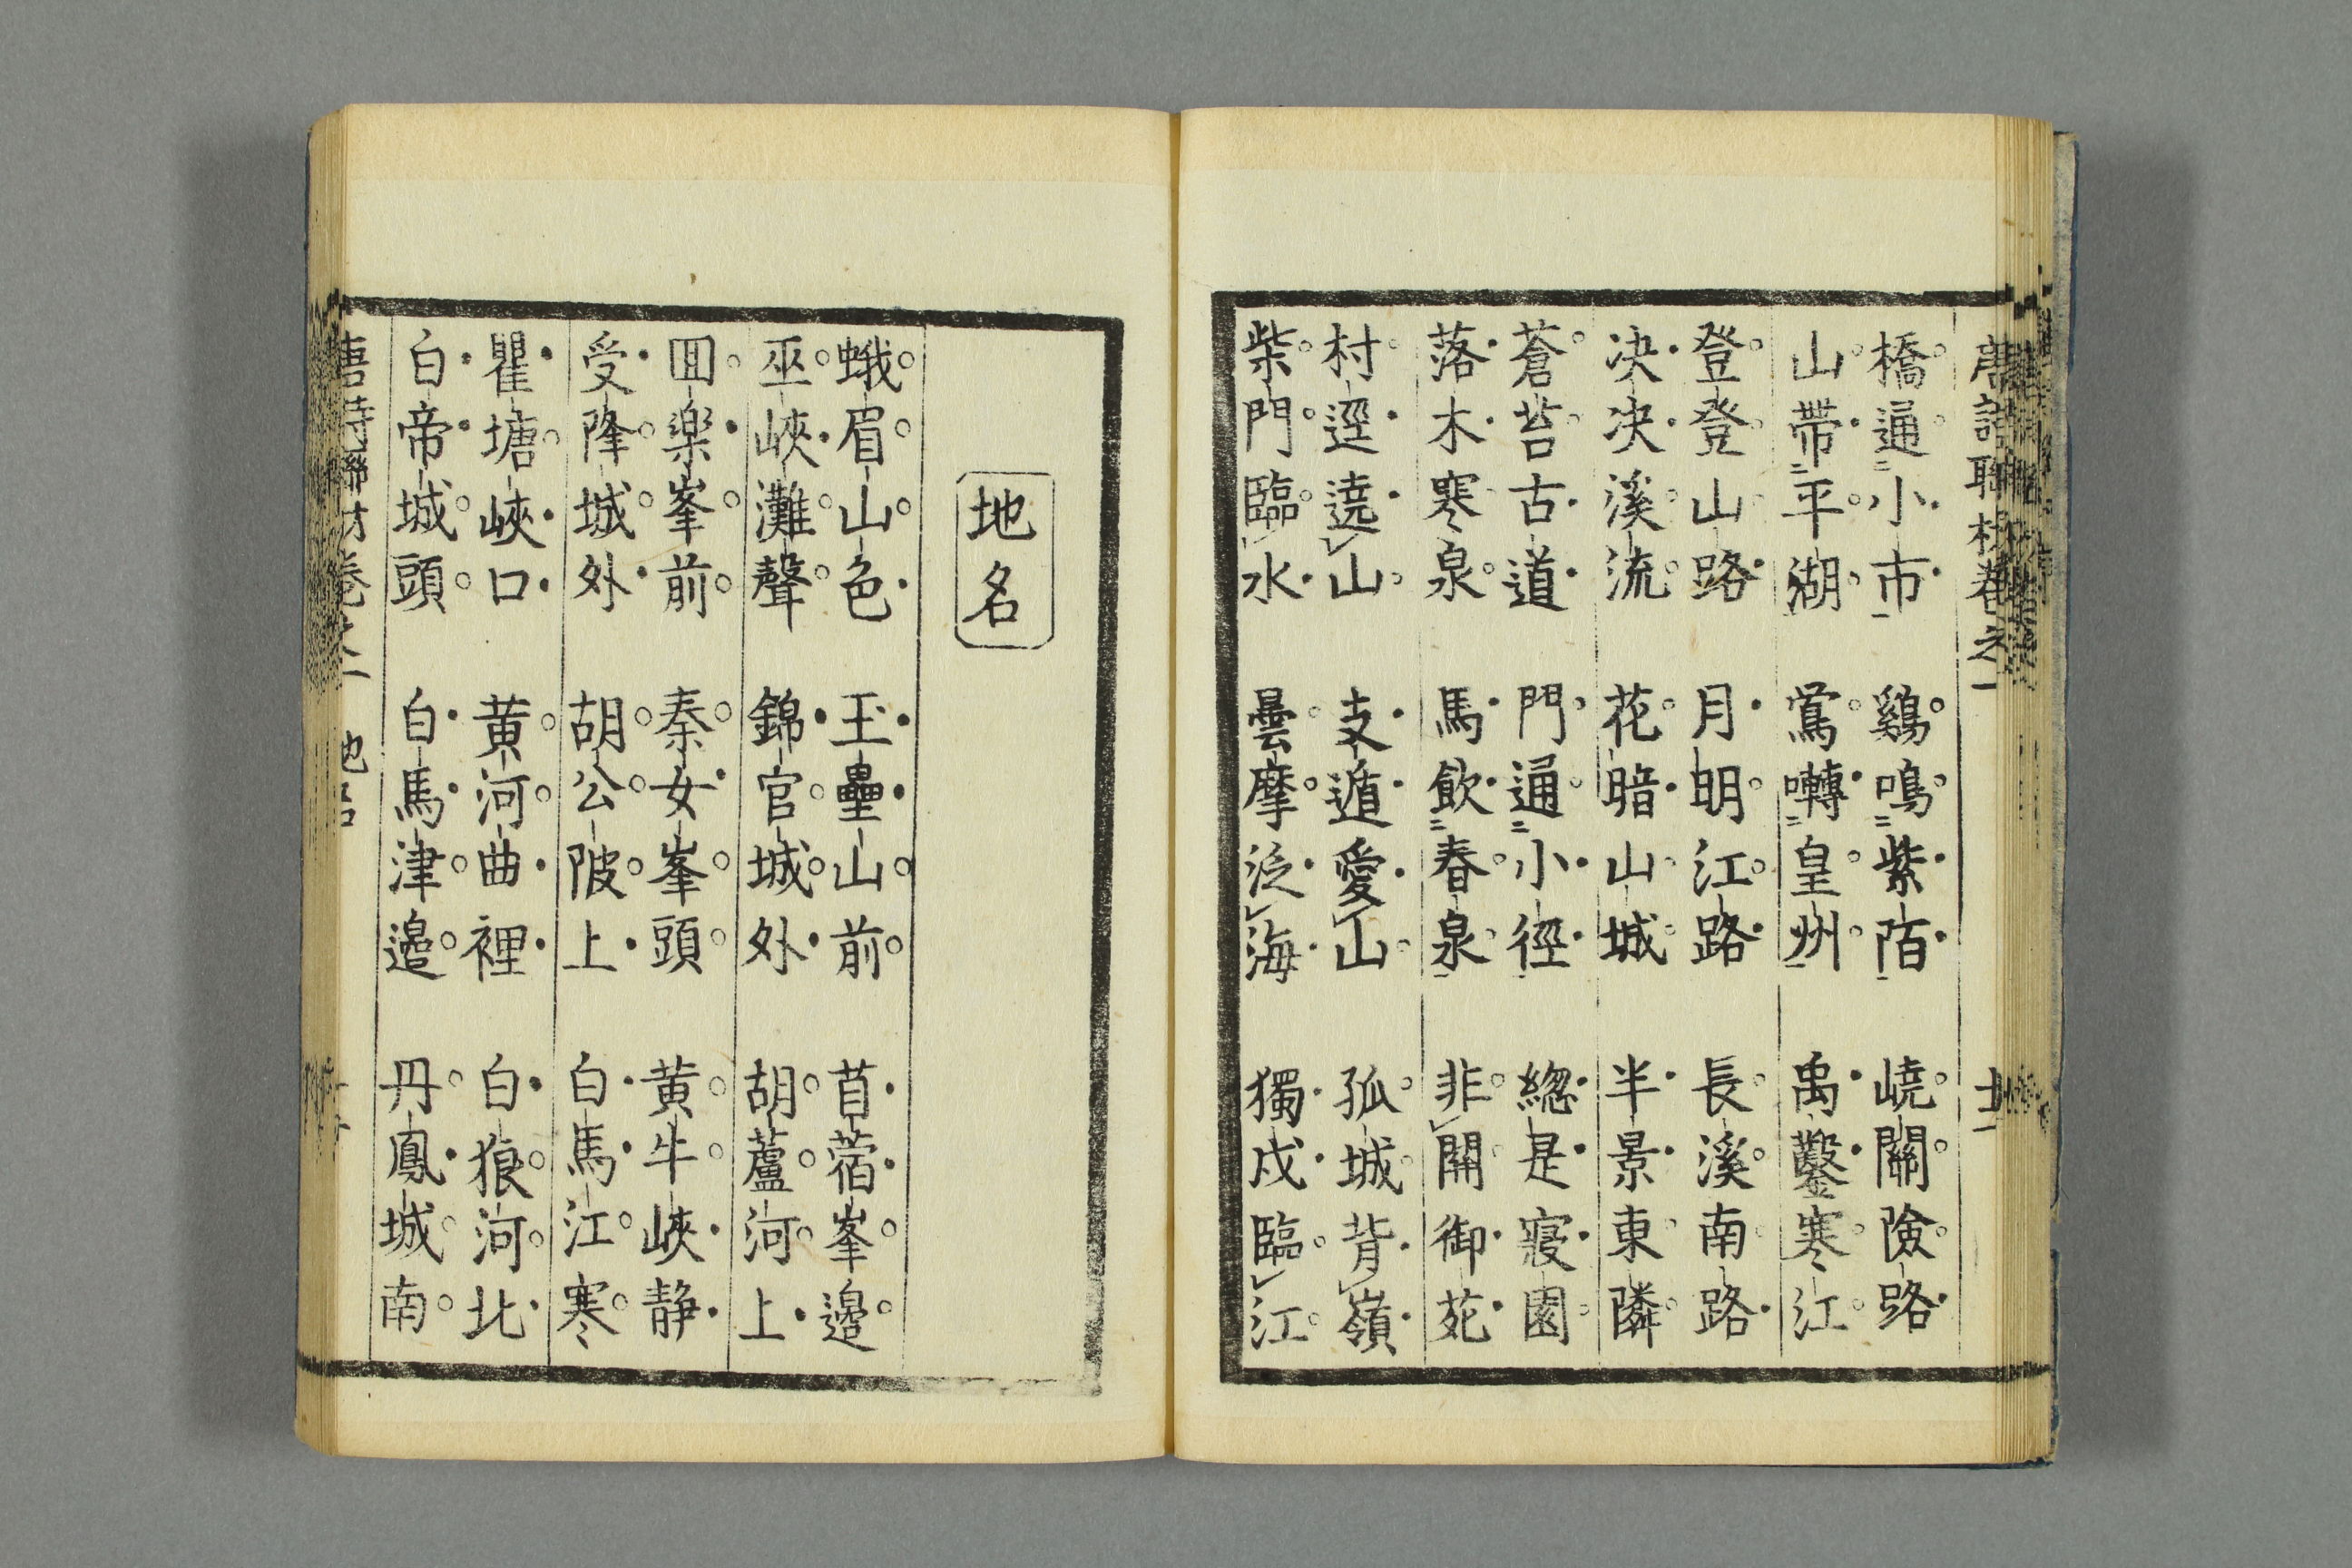 橋通小市 鷄鳴紫陌 嶢關險路
山帶平湖 鶯囀皇州 禹鑿寒江
登登山路 月明江路 長溪南路
決決溪流 花暗山城 半景東隣
蒼苔古道 門通小徑 總是寢園
落木寒泉 馬飲春泉 非開御苑
村逕遶山 支遁愛山 孤城背嶺
柴門臨水 曇摩泛海 獨戍臨江
地名
蛾眉山色 玉壘山前 苜蓿峯邉
巫峽灘聲 錦官城外 胡蘆河上
囬樂峯前 秦女峯頭 黄牛峽静
受降城外 胡公陂上 白馬江寒
瞿塘峽口 黄河曲裡 白狼河北
白帝城頭 白馬津邉 丹鳳城南